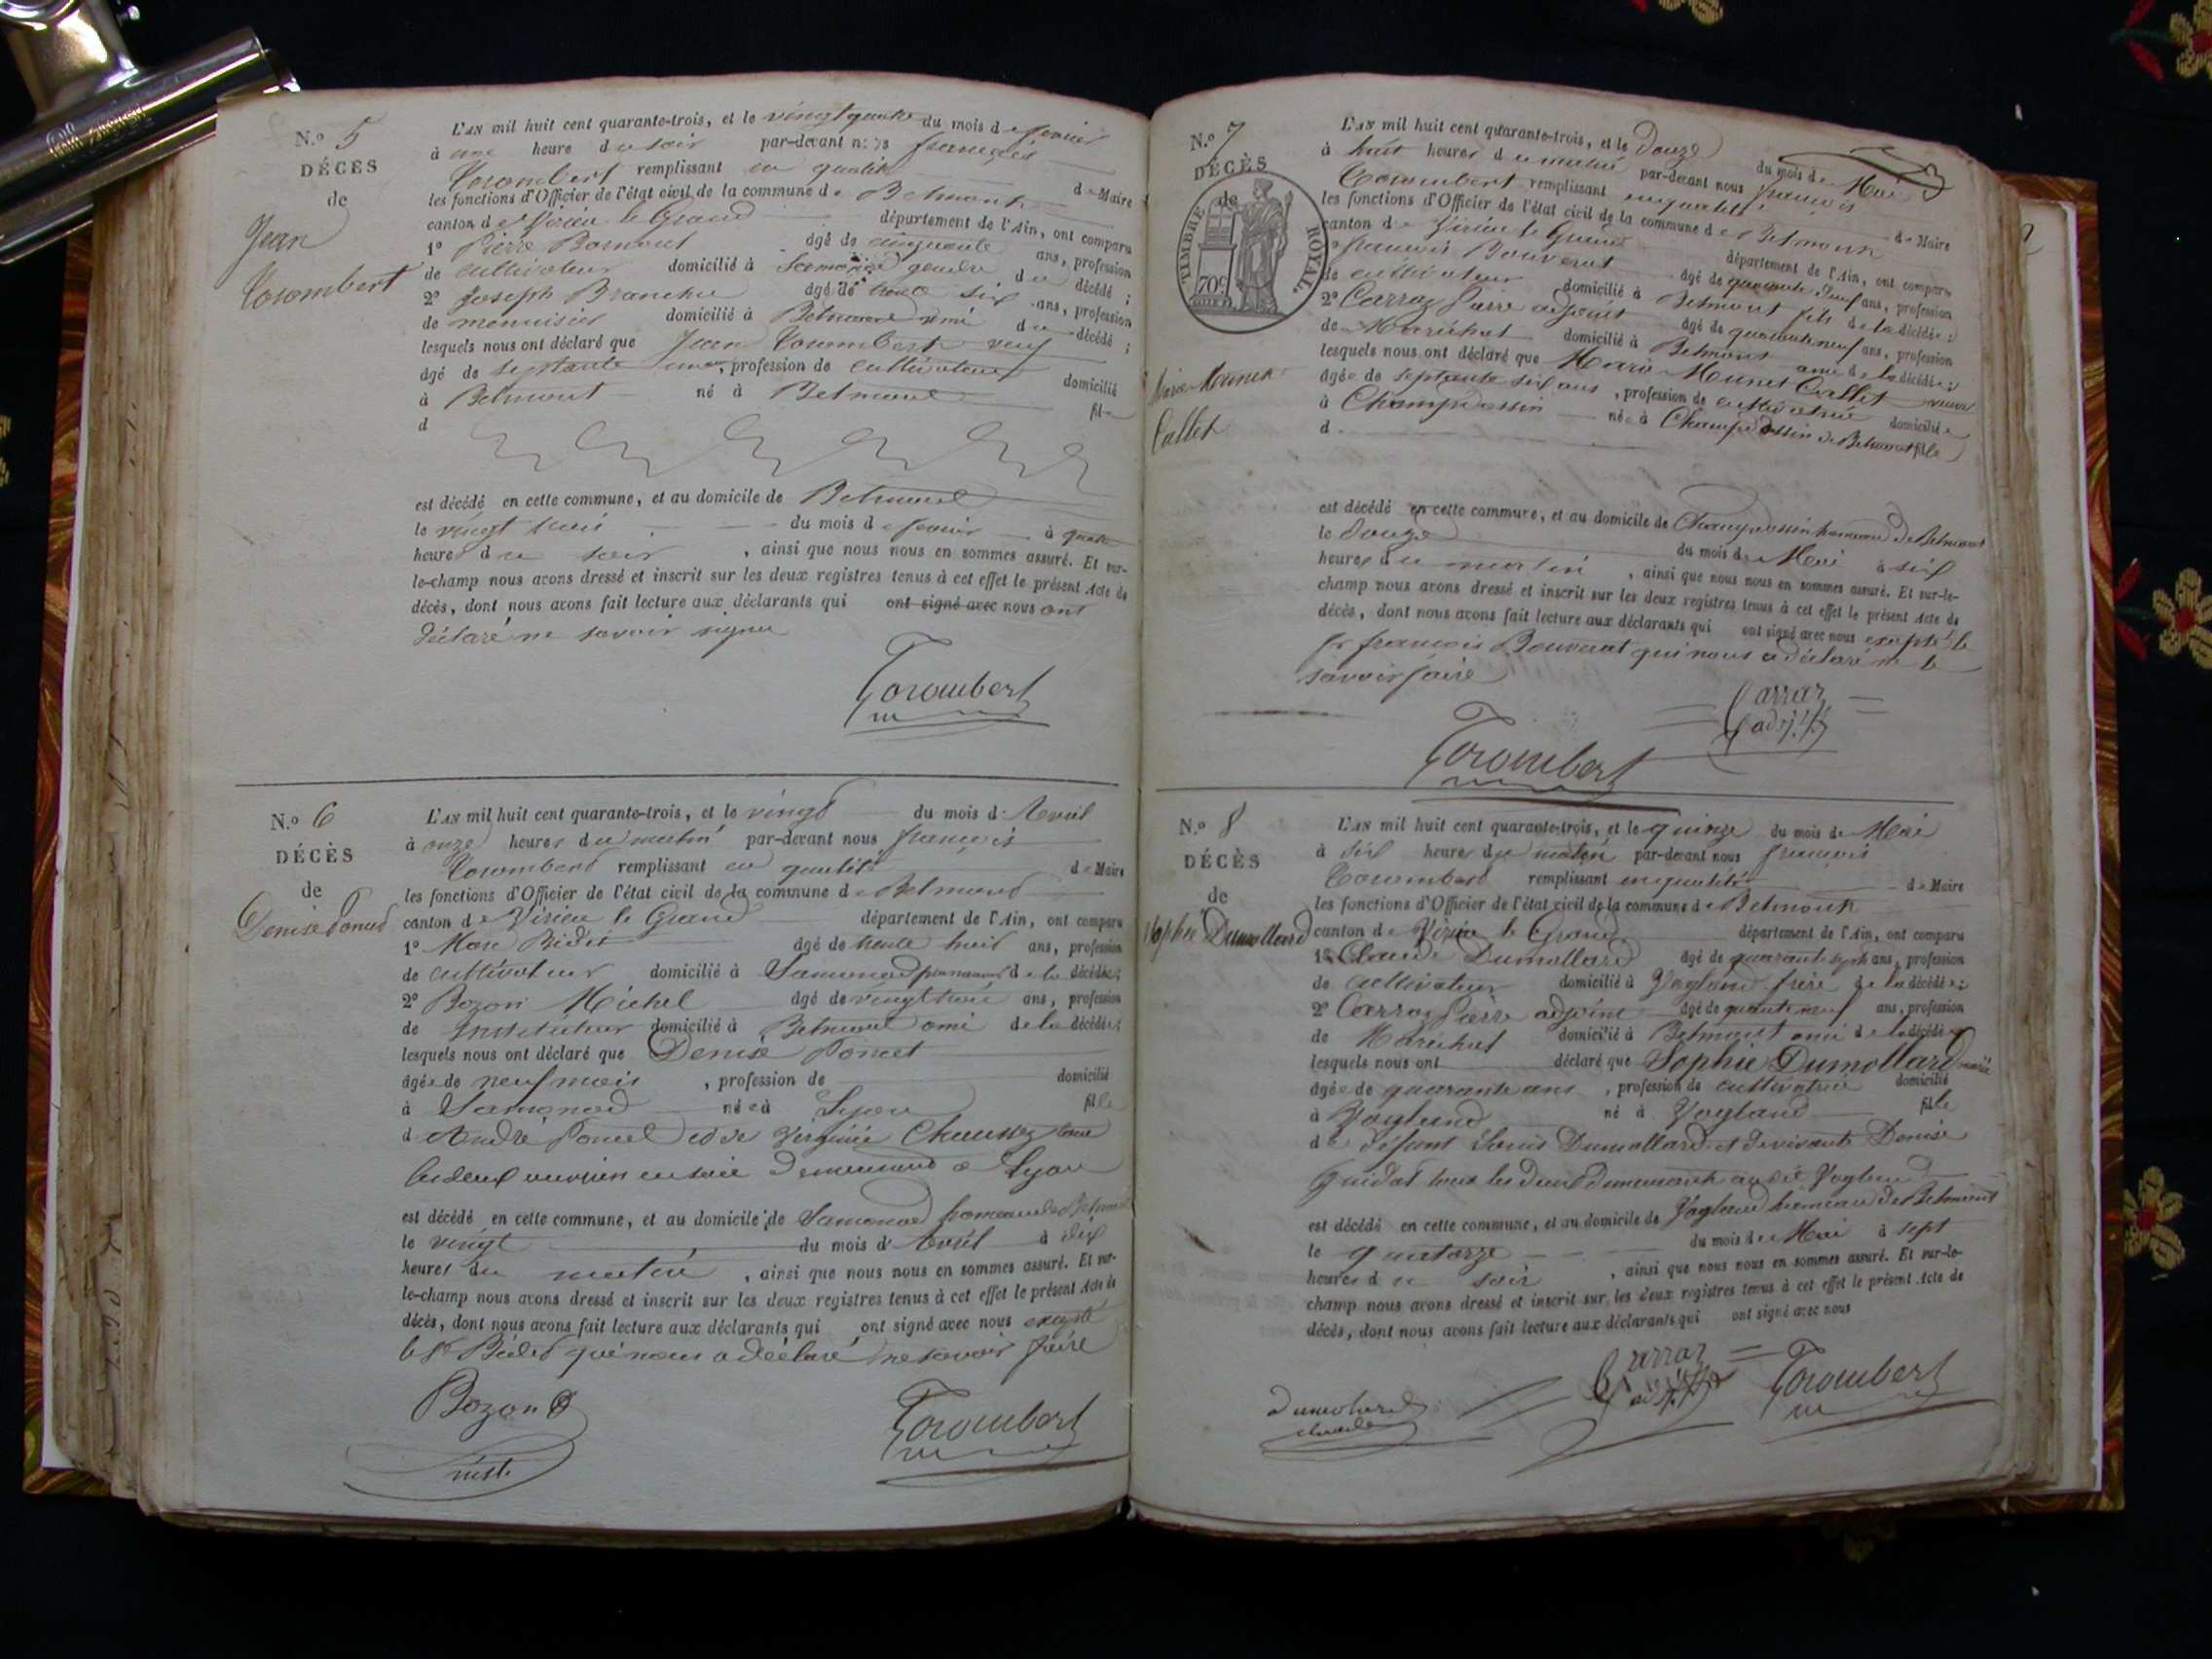 N.o 5
DÉCÈS
de
Jean
Torombert
L'AN mil huit cent quarante-trois, et le vingt quatre du mois de
à une heure du soir par-devant nous françois
Torombert remplissant en qualité de Maire
les fonctions d'Officier de l'état civil de la commune de Belmont
canton de Virieu le Grand département de l'Ain, ont comparu
1o Pierre Bornout âgé de cinquante ans, profession
de cultivateur domicilié à gendre du décédé ;
2o Joseph Branche âgé de trente six ans, profession
de menuisier domicilié à Belmont ami du décédé ;
lesquels nous ont déclaré que Jean Torombert veuf
âgé de septante ans, profession de cultivateur domicilié
à Belmont né à Belmont fil
d
est décédé en cette commune, et au domicile de Belmont
le vingt trois du mois de à quatre
heures du soir , ainsi que nous nous en sommes assuré. Et sur-
le-champ nous avons dressé et inscrit sur les deux registres tenus à cet effet le présent Acte de
décès, dont nous avons fait lecture aux déclarants qui ont signé avec nous ont
déclaré ne savoir signer
Torombert
N.o 6
DÉCÈS
de
Denise Poncet
L'AN mil huit cent quarante-trois, et le vingt du mois d'Avril
à onze heures du matin par-devant nous françois
Torombert remplissant en qualité de Maire
les fonctions d'Officier de l'état civil de la commune de Belmont
canton de Virieu le Grand département de l'Ain, ont comparu
1o Marc Bidet âgé de trente huit ans, profession
de cultivateur domicilié à Samonod de la décédée;
2o Bozon Michel âgé de vingt trois ans, profession
de Instituteur domicilié à Belmont ami de la décédée;
lesquels nous ont déclaré que Denise Poncet
âgée de neuf mois , profession de domicilié
à Samonod née à Lyon fille
d André Poncet et de Virginie tous
les deux ouvriers en soie demeurant à Lyon
est décédé en cette commune, et au domicile de Samonod hameau de Belmont
le vingt du mois d'Avril à dix
heures du matin , ainsi que nous nous en sommes assuré. Et sur-
le-champ nous avons dressé et inscrit sur les deux registres tenus à cet effet le présent Acte de
décès, dont nous avons fait lecture aux déclarants qui ont signé avec nous excepté
le Sr Bidet qui nous a déclaré ne savoir faire
Bozon
inst.
Torombert
N.o 7
DÉCÈS
de
TIMBRE ROYAL.
70c
Marie Monnet
Callet
L'AN mil huit cent quarante-trois, et le douze du mois de Mai
à huit heures du matin par-devant nous françois
Torombert remplissant en qualité de Maire
les fonctions d'Officier de l'état civil de la commune de Belmont
canton de Virieu le Grand département de l'Ain, ont comparu
1o françois Bouverat âgé de quarante neuf ans, profession
de cultivateur domicilié à Belmont fils de la décédée;
2o Carraz Pierre adjoint âgé de quarante neuf ans, profession
de Maréchal domicilié à Belmont ami de la décédée;
lesquels nous ont déclaré que Marie Monnet Callet veuve
âgée de septante six ans , profession de cultivatrice domiciliée
à Champdossin née à Champdossin de Belmont fille
d
est décédé en cette commune, et au domicile de Champdossin hameau de Belmont
le douze du mois de Mai à six
heures du matin , ainsi que nous nous en sommes assuré. Et sur-le-
champ nous avons dressé et inscrit sur les deux registres tenus à cet effet le présent Acte de
décès, dont nous avons fait lecture aux déclarants qui ont signé avec nous excepté le
Sr françois Bouverat qui nous a déclaré ne le
savoir faire
Carraz
adjt
Torombert
N.o 8
DÉCÈS
de
Sophie Dumollard
L'AN mil huit cent quarante-trois, et le quinze du mois de Mai
à six heures du matin par-devant nous françois
Torombert remplissant en qualité de Maire
les fonctions d'Officier de l'état civil de la commune de Belmont
canton de Virieu le Grand département de l'Ain, ont comparu
1o Claude Dumollard âgé de quarante sept ans, profession
de cultivateur domicilié à Vogland frère de la décédée;
2o Carraz Pierre adjoint âgé de quarante neuf ans, profession
de Maréchal domicilié à Belmont ami de la décédée
lesquels nous ont déclaré que Sophie Dumollard
âgée de quarante ans , profession de cultivatrice domicilié
à Vogland né à Vogland fille
de défunt Louis Dumollard et de vivante Denise
Guidat tous les deux demeurant audit Vogland
est décédé en cette commune, et au domicile de Vogland hameau de Belmont
le quatorze du mois de Mai à sept
heures du soir , ainsi que nous nous en sommes assuré. Et sur-le-
champ nous avons dressé et inscrit sur les deux registres tenus à cet effet le présent Acte de
décès, dont nous avons fait lecture aux déclarants qui ont signé avec nous
dumollard
claude
Carraz
adjt
Torombert